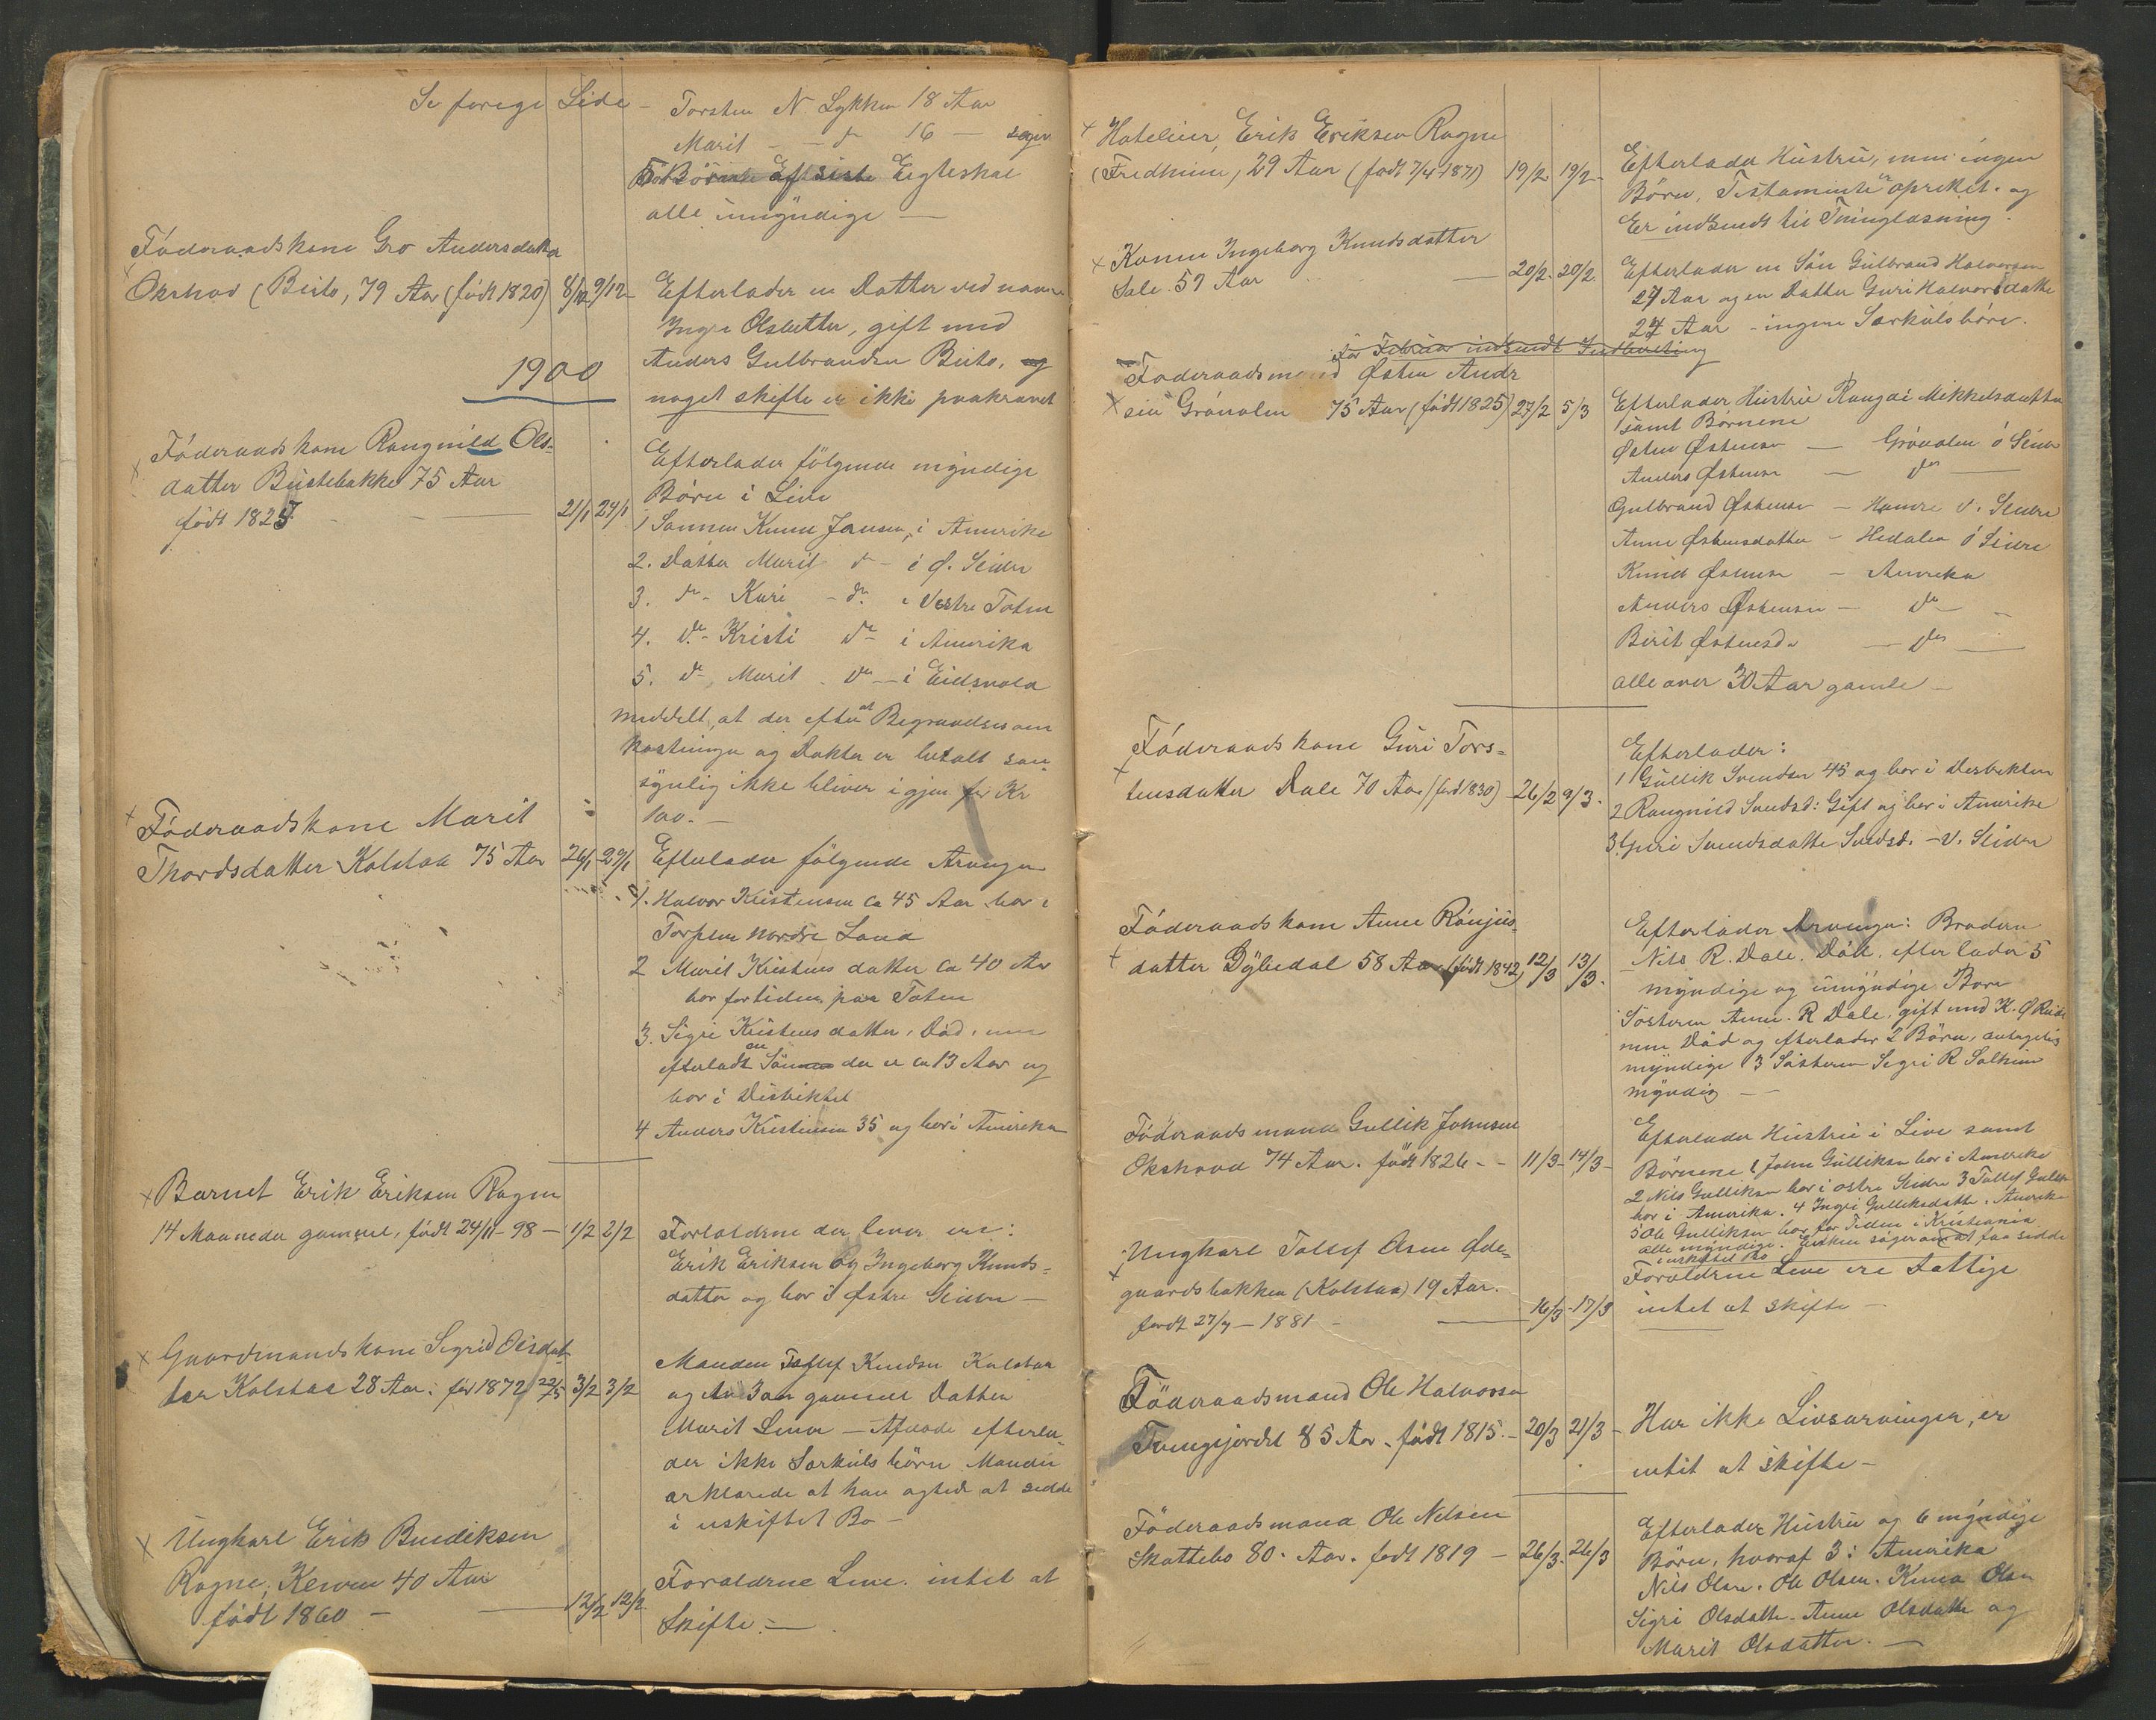 Se forege Side - Torsten N. Lykken 18 Aar
Marit - - do 16 -
Eegteskab
alle umyndige -
Föderaadskone Gro Andersdatter
Okshov (Beito, 79 Aar (född 1820) 8/12 9/12
Efterlader en Datter ved navn
Inger Olsdatter, gift med
Anders Gulbrandsen Beito, og
noget skifte er ikke paakrævet
1900
Föderaadskone Rangnild Ols-
datter Büstebakke 75 Aar
födt 1825 - 21/1 24/1
Efterlader fölgende myndige
Börn i Live
1 Sønnen Knut Jansen, i Amerika
2. Datter Marit do - i Ø. Slidre
3. do - Kari - do. i Vestre Toten
4. do - Kristi do - i Amerika
5. do, Marit. do - i Eidsvold
meddelt, at der efter at Begravelsesom
kostninger og Dokter er betalt san-
synlig ikke bliver igjen for Kr
100. -
Föderaadskone Marit
Thordsdatter Kolstad 75 Aar 26/1 29/1
Efterlader fölgende Arvinger
1. Halvor Kristensen ca 45 Aar bor i
Torpen Nordre Land
2 Marit Kristensdatter ca 40 Aar
bor fortiden paa Toten
3. Sigri Kristensdatter, Död, men
efterladt en Sön der er ca 13 Aar og
bor i Distriktet
4 Anders Kristensen 35 og bor i Amerika
Barnet Erik Eriksen Rogne
14 Maaneder gammel, födt 24/11 - 98 - 1/2 2/2
Forældrene der lever ere:
Erik Eriksen og Ingeborg Knuds-
datter og bor i Østre Slidre -
Gaardmandskone Sigrid Olsdat-
ter Kolstad 28 Aar: föd 1872 22/5 3/2 3/2
Manden Tollef Knudsen Kolstad
og en 3 aar gammel Datter
Marit Lever - Afdøde efterla-
der ikke Særkulsbörn Manden
erklærede at han agtede at sidde
i uskiftet Bo -
Ungkarl Erik Bendiksen
Rogne, Kevren 40 Aar
födt 1860 - 12/2 12/2
Forældrene Leve. intet at
Skifte. -
Hotelieier, Erik Eriksen Rogne
(Fredheim, 29 Aar (födt 7/4 1871) 19/2. 19/2 -
Efterlader Hustrü, men ingen
Börn, Testamente er oprettet. og
Er indsendt til Tinglæsning.
Konen Ingeborg Knudsdatter
Dale. 57 Aar - 20/2. 20/2.
Efterlader en Sön Gulbrand Halvorsen
27 Aar og en Datter Guri Halvorsdatter
24 Aar - ingen Særkulsbörn.
for Februar indsendt Indberetning
Föderaadsmand Østen Andr
sen Grönolen 75 Aar (födt 1825) 27/2 5/3
Efterlader Hustrü Rangdi Mikkelsdatter
samt Börnene
Østen Østensen - Grönolen Ö Slidre
Anders Østensen - do -
Gulbrand Østensen - Hamre V. Slidre
Anne Østensdatter - Hedalen Ö Slidre
Knud Østensen - Amerika
Anders Østensen - do -
Birit Østensd. - do -
alle over 30 Aar gamle -
Föderaadskone Guri Tors-
tensdatter Dale 70 Aar (född 1830) - 26/2 9/3.
Efterlader:
1 Gullik Svendsen 45 og bor i Distrikten
2 Rangnild Svendsd: Gift og bor i Amerika
3 Guri Svendsdatter Svendsd. - V. Slidre
Föderaadskone Anne Rönjüs-
datter Döbedal 58 Aar (födt 1842) 12/3 13/3.
Efterlader Arvinger: Broderen
Nils R. Dale. Död, efterlader 5
myndige og umyndige Börn
Sösteren Anne. R Dale, gift med K. Ø
men Död og efterlader 2 Börn, antagelig
myndige 3 Sösteren Sigri R Solheim
myndig -
Föderaadsmand Gullik Johnsen
Okshovd 74 Aar. födt 1826 - - 11/3 - 14/3 -
Efterlader Hustrü i Live samt
Börnene 1 John Gulliksen bor i Amerika
2 Nils Gulliksen bor i østre Slidre 3 Tollef Gulliksen
bor i Amerika. 4 Ingri Gulliksdatter, Amerika
5 Ole Gulliksen bor for Tiden i Kristiania.
alle myndige. Enken söger om at faa sidde
i uskiftet Bo
Ungkarl Tollef Øde-
gaardsbakken (Kolstad) 19 Aar.
født 27/7 - 1881 - 16/3 - 17/3
Forældrene Leve ere Fattige
intet at skifte -
Föderaadsmand Ole Halvorsen
Tvengejordet 85 Aar. födt 1815. - 20/3 21/3 -
Har ikke Livsarvinger, er
intet at skifte -
Föderaadsmand Ole Nilsen
Skattebo 80. Aar. födt 1819 - 26/3. 26/3
Efterlader Hustrü og 6 myndige
Börn, hvoraf 3 i Amerika
Nils Olsen. Ole Olsen. Knud Olsen
Sigri Olsdatter. Anne Olsdatter og
Marit Olsdatter. -